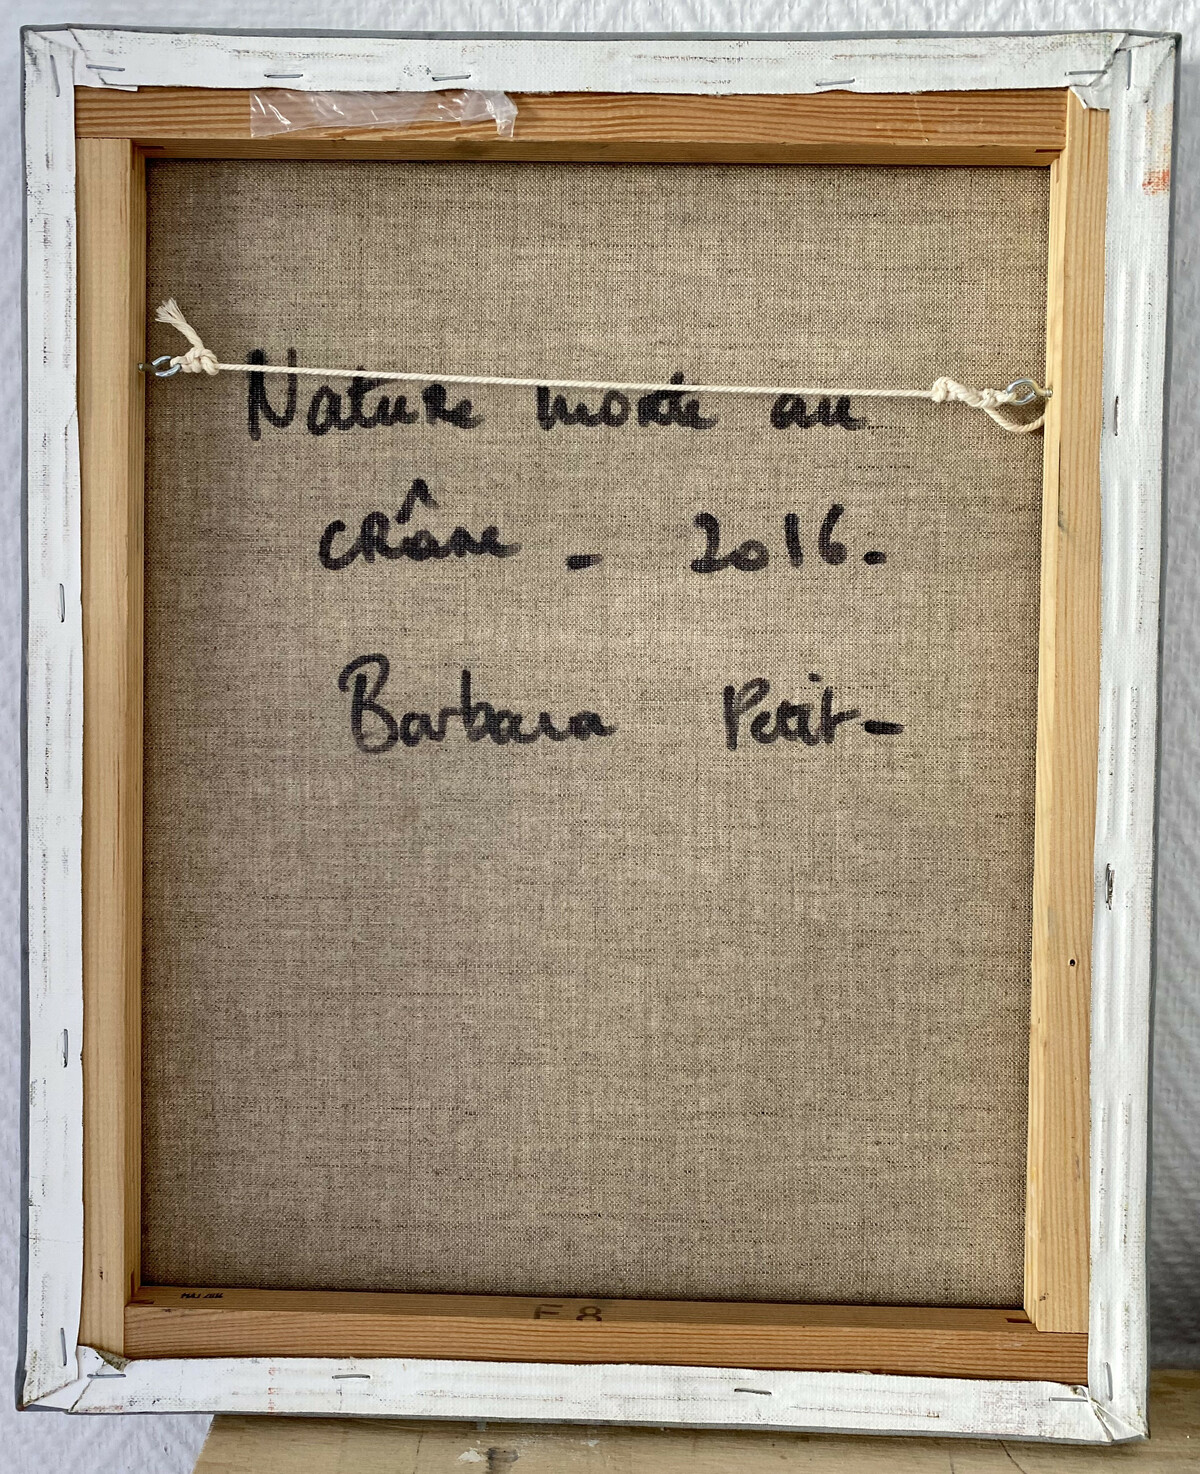 Nature morte au
crâne - 2016-
Barbara Petit-
F 8